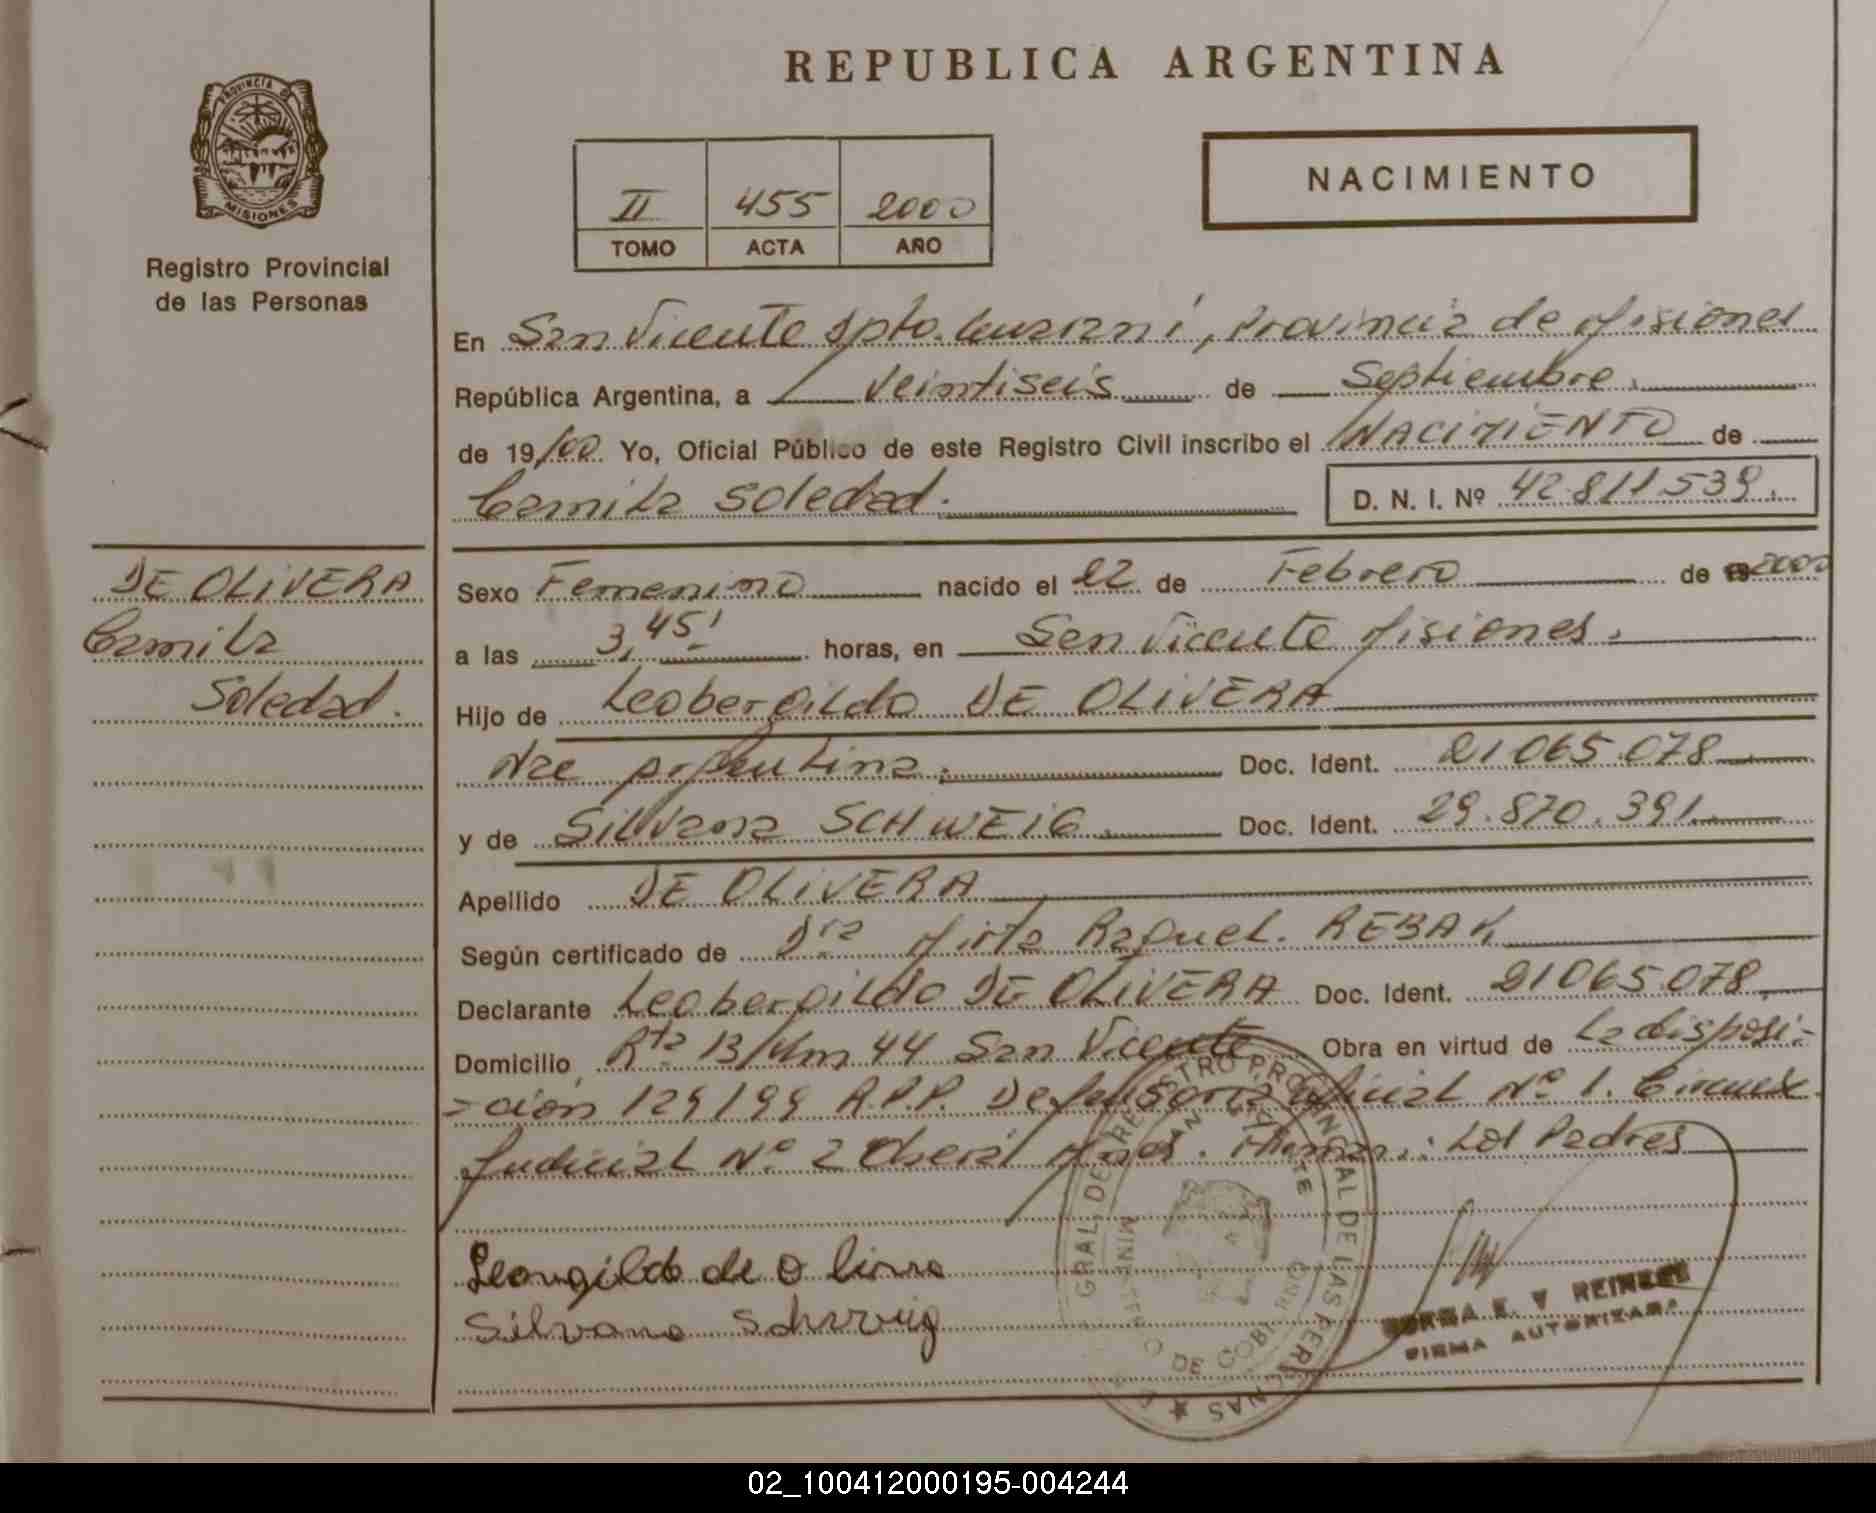 REPUBLICA ARGENTINA
PROVINCIA DE
MISIONES
Registro Provincial
de las Personas
II 455 2000
TOMO ACTA AÑO
NACIMIENTO
En San Vicente Dpto. Guaraní, Provincia de Misiones
República Argentina, a Veintiseis de Septiembre.
de 19/00 Yo, Oficial Público de este Registro Civil inscribo el NACIMIENTO de
Camila Soledad. D. N. I. Nº 42.811.539.
DE OLIVERA
Camila
Soledad.
Sexo Femenino nacido el 22 de Febrero de 2000
a las 3,45' horas, en San Vicente Misiones.
Hijo de Leobergildo DE OLIVERA
Nac Argentina. Doc. Ident. 21.065.078
y de Silvana SCHWEIG Doc. Ident. 29.870.391
Apellido DE OLIVERA
Según certificado de Dra Mirta Raquel. REBAK
Declarante Leobergildo DE OLIVERA Doc. Ident. 21.065.078
Domicilio Rta 13/Km 44 San Vicente Obra en virtud de La disposi-
-cion 129/99 R.P.P. Defensoria Oficial Nº 1. Circunx
Judicial Nº 2 Oberá Mnes. Firman: Los Padres
Leovgildo de Olivera
Silvana Schweig
GRAL. DE REGISTRO PROVINCIAL DE LAS PERSONAS
SAN VICENTE
MINISTERIO DE GOBIERNO
NORMA E. V REINERT
FIRMA AUTORIZADA
02_100412000195-004244